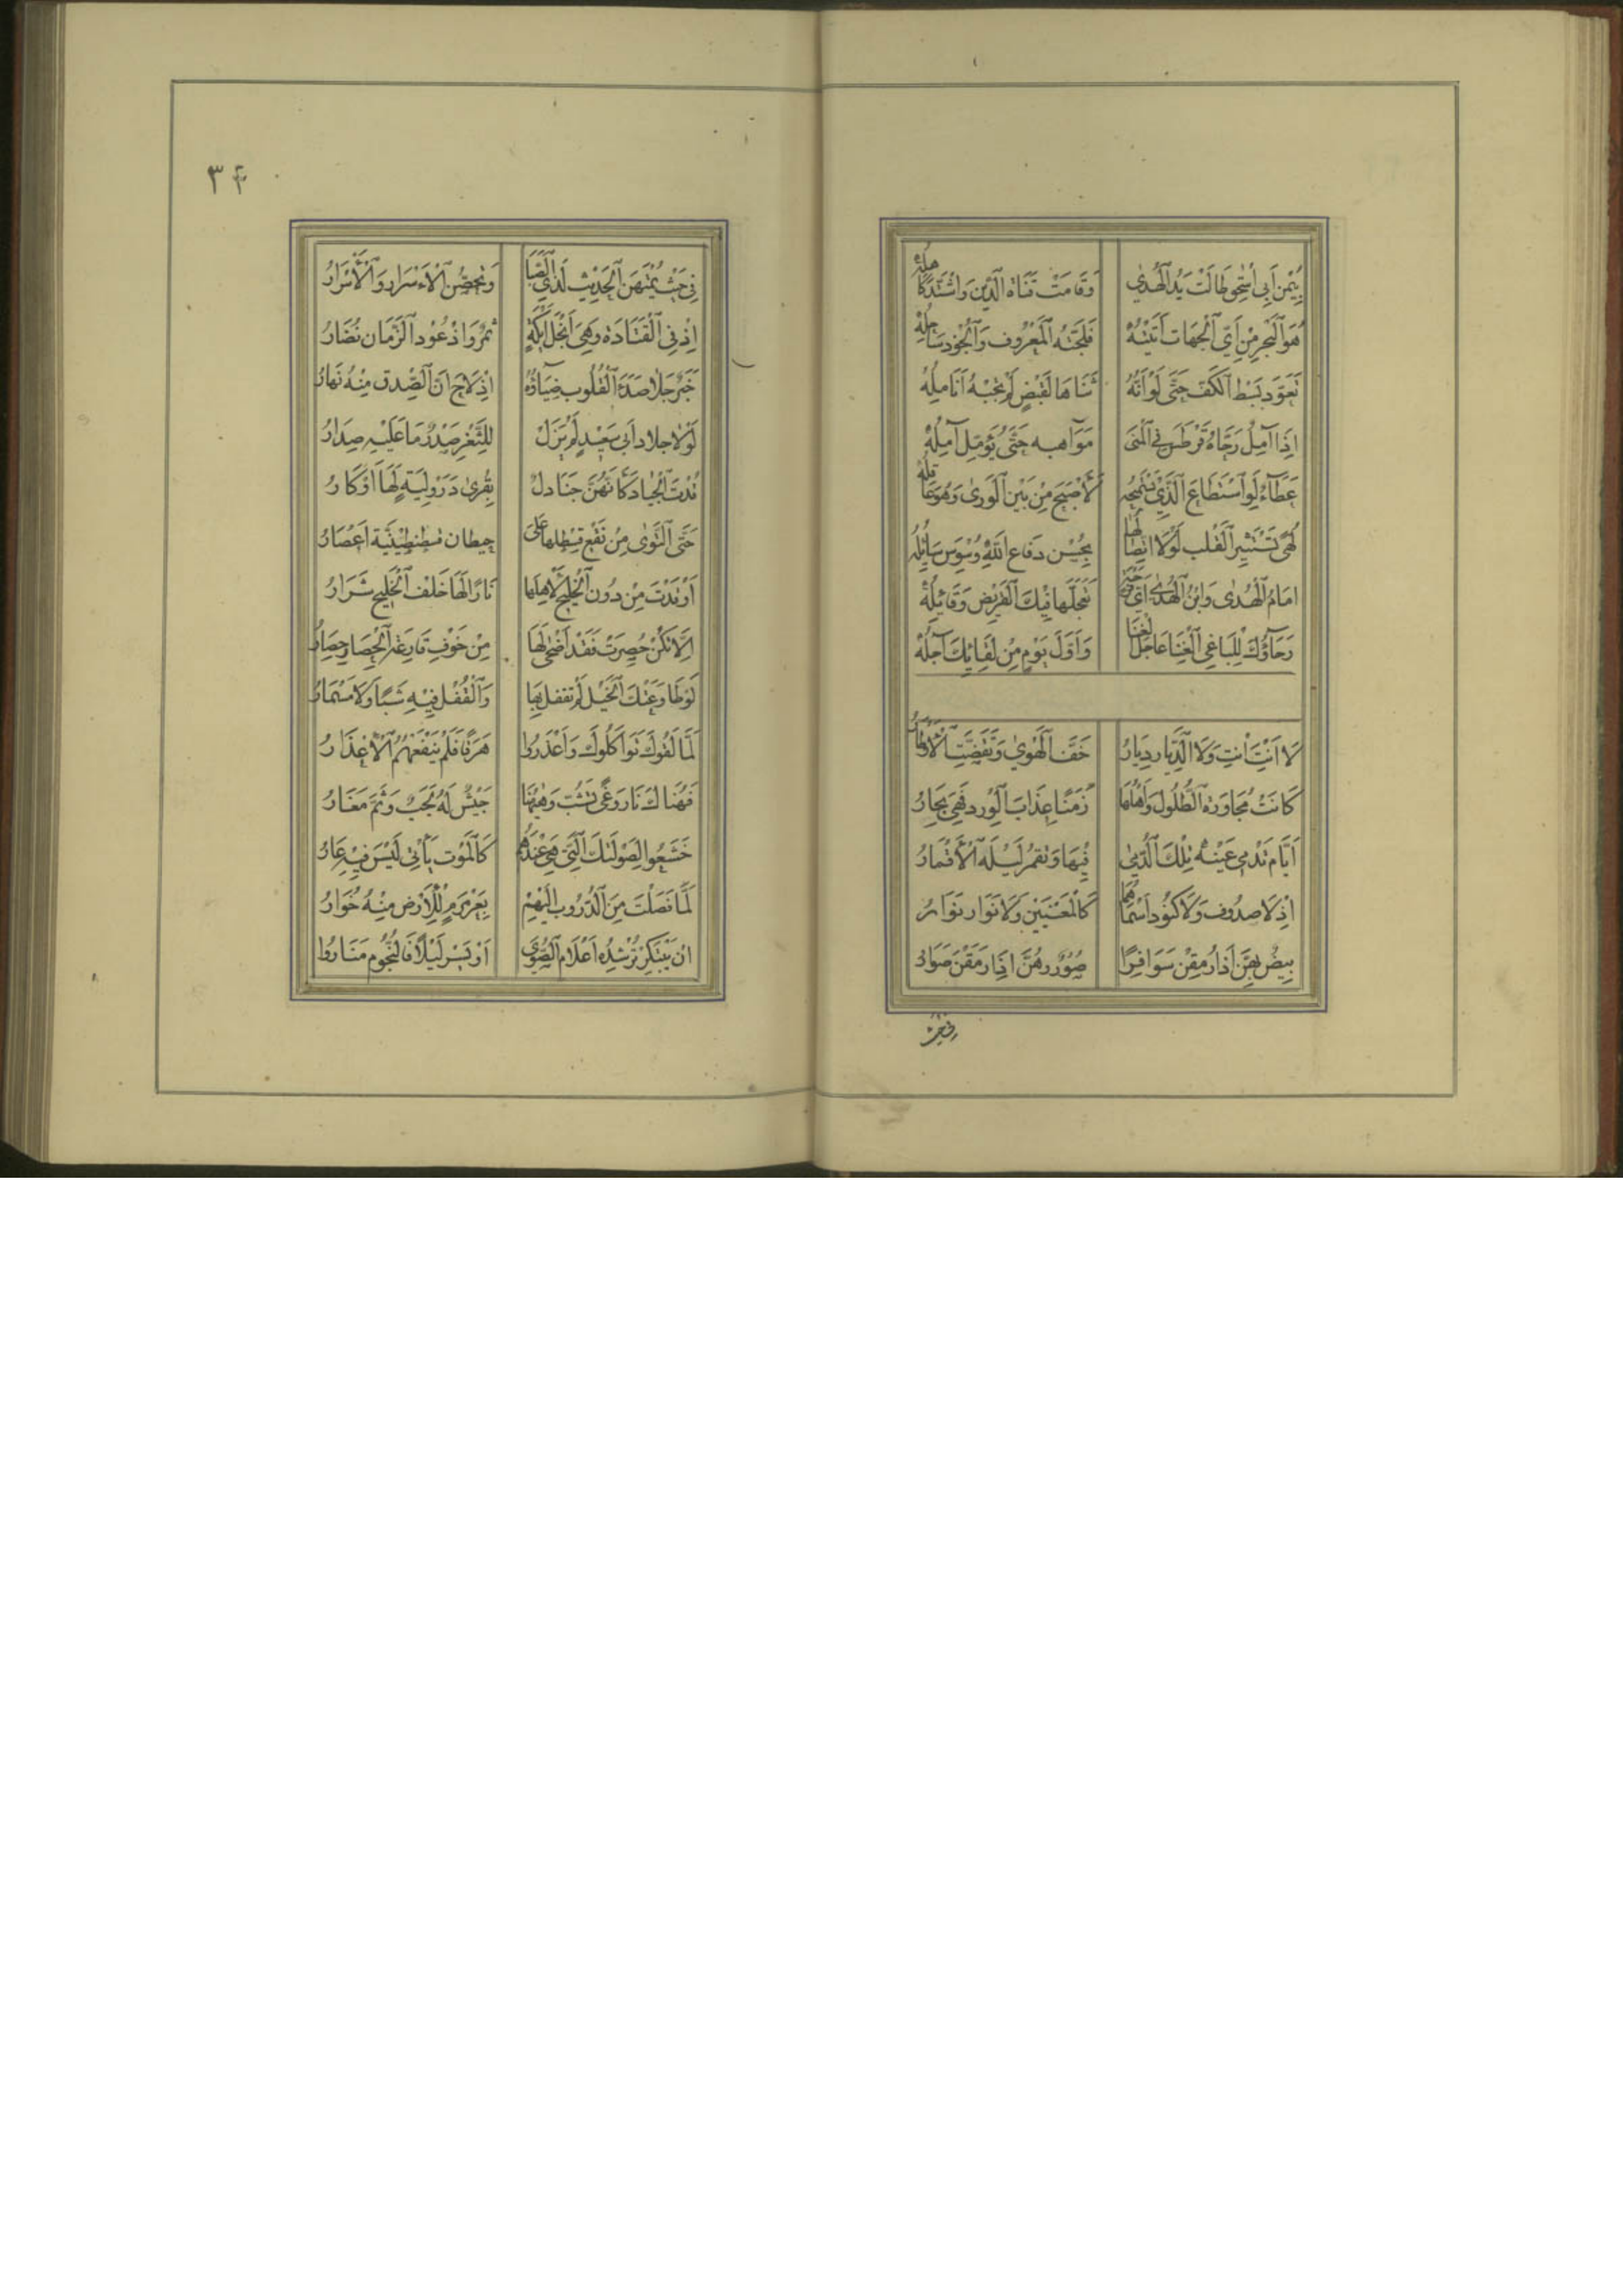 بِيُمْنِ أَبِي إِسْحٰقَ طَالَتْ يَدُ الْهُدٰى وَقَامَتْ قَنَاةُ الدِّينِ وَاشْتَدَّ كَاهِلُهْ
هُوَ الْبَحْرُ مِنْ أَيِّ الْجِهَاتِ أَتَيْتَهُ فَلُجَّتُهُ الْمَعْرُوفُ وَالْجُودُ سَاحِلُهْ
تَعَوَّدَ بَسْطَ الْكَفِّ حَتَّى لَوْ أَنَّهُ ثَنَاهَا لِقَبْضٍ لَمْ تُجِبْهُ أَنَامِلُهْ
إِذَا آمِلٌ رَجَّاهُ قَرْطَسَ فِي الْمُنَى مَوَاهِبه حَتَّى يُؤَمِّلَ آمِلُهْ
عَطَاءٌ لَوِ اسْتَطَاعَ الَّذِي يَسْتَمِيحُهُ لَأَصْبَحَ مِنْ بَيْنِ الْوَرٰى وَهُوَ عَاقِلُهْ
لُهًى تَسْتَثِيرُ الْقَلْبَ لَوْلَا اتِّصَالُهَا بِحُسْنِ دِفَاعِ اللهِ وُسْوِسَ سَائِلُهْ
إِمَامُ الْهُدٰى وَابْنُ الْهُدٰى أَيّ فَرْحَةٍ تَعَجَّلَهَا فِيكَ الْقَرِيضُ وَقَائِلُهْ
رَجَاؤُكَ لِلْبَاغِي الْغِنَا عَاجِلُ الْغِنَا وَأَوَّلُ يَوْمٍ مِنْ لِقَائِكَ آجِلُهْ
لَا أَنْتِ أَنْتِ وَلَا الدِّيَارُ دِيَارُ خَفَّ الْهَوٰى وَتَقَضَّتِ الْأَوْطَارُ
كَانَتْ مُجَاوَرَةُ الطُّلُولِ وَأَهْلُهَا زَمَنًا عِذَابَ الْوِرْدِ فَهِيَ بِحَارُ
أَيَّامَ تُدْمِي عَيْنَهُ تِلْكَ الدُّمٰى فِيهَا وَتَقْمُرُ لَيْلَهُ الْأَقْمَارُ
إِذْ لَا صَدُوفُ وَلَا كَنُودُ اسْمَاهُمَا كَالْمَعْنَيَيْنِ وَلَا نَوَارُ نَوَارُ
بِيضٌ فَهُنَّ إِذَا رُمِقْنَ سَوَافِرًا صُوَرٌ وَهُنَّ إِذَا رَمَقْنَ صَوَارُ
في حيث
٣٤
فِي حَيْثُ يُمْتَهَنُ الْحَدِيثُ لِذِي الصِّبَا وَتُحَصَّنُ الْأَسْرَارُ وَالْأَسْرَارُ
إِذْ فِي الْقَتَادَةِ وَهِيَ أَبْخَلُ أَيْكَةٍ ثَمَرٌ وَإِذْ عُودُ الزَّمَانِ نُضَارُ
خَبَرٌ جَلَا صَدَأَ الْقُلُوبِ ضِيَاؤُهُ إِذْ لَاحَ أَنَّ الصِّدْقَ مِنْهُ نَهَارُ
لَوْلَا جِلَادُ أَبِي سَعِيدٍ لَمْ يَزَلْ لِلثَّغْرِ صَدْرٌ مَا عَلَيْهِ صِدَارُ
قُدْتَ الْجِيَادَ كَأَنَّهُنَّ أَجَادِلٌ بِقُرٰى دَرَوْلِيَةٍ لَهَا أَوْكَارُ
حَتَّى الْتَوٰى مِنْ نَقْعِ قَسْطَلِهَا عَلَى حِيطَانِ قُسْطَنْطِينِيَّةَ إِعْصَارُ
أَوْقَدْتَ مِنْ دُونِ الْخَلِيجِ لِأَهْلِهَا نَارًا لَهَا خَلْفَ الْخَلِيجِ شَرَارُ
إِلَّا تَكُنْ حُصِرَتْ فَقَدْ أَضْحٰى لَهَا مِنْ خَوْفِ قَارِعَةِ الْحِصَارِ حِصَارُ
لَوْ طَاوَعَتْكَ الْخَيْلُ لَمْ تَقْفِلْ بِهَا وَالْقُفْلُ فِيهِ شَبًا وَلَا مِسْمَارُ
لَمَّا لَقُوكَ تَوَاكَلُوكَ وَأَعْذَرُوا هَرَبًا فَلَمْ يَنْفَعْهُمُ الْإِعْذَارُ
فَهُنَاكَ نَارُ وَغًى تُشَبُّ وَهٰهُنَا جَيْشٌ لَهُ لَجَبٌ وَثَمَّ مُغَارُ
خَشَعُوا لِصَوْلَتِكَ الَّتِي هِيَ عِنْدَهُمْ كَالْمَوْتِ يَأْتِي لَيْسَ فِيهِ عَارُ
لَمَّا فَصَلْتَ مِنَ الدُّرُوبِ إِلَيْهِمْ بِعَرَمْرَمٍ لِلْأَرْضِ مِنْهُ خُوَارُ
إِنْ يَبْتَكِرْ تُرْشِدْهُ أَعْلَامُ الصُّوٰى أَوْ يَسْرِ لَيْلًا فَالنُّجُومُ مَنَارُ